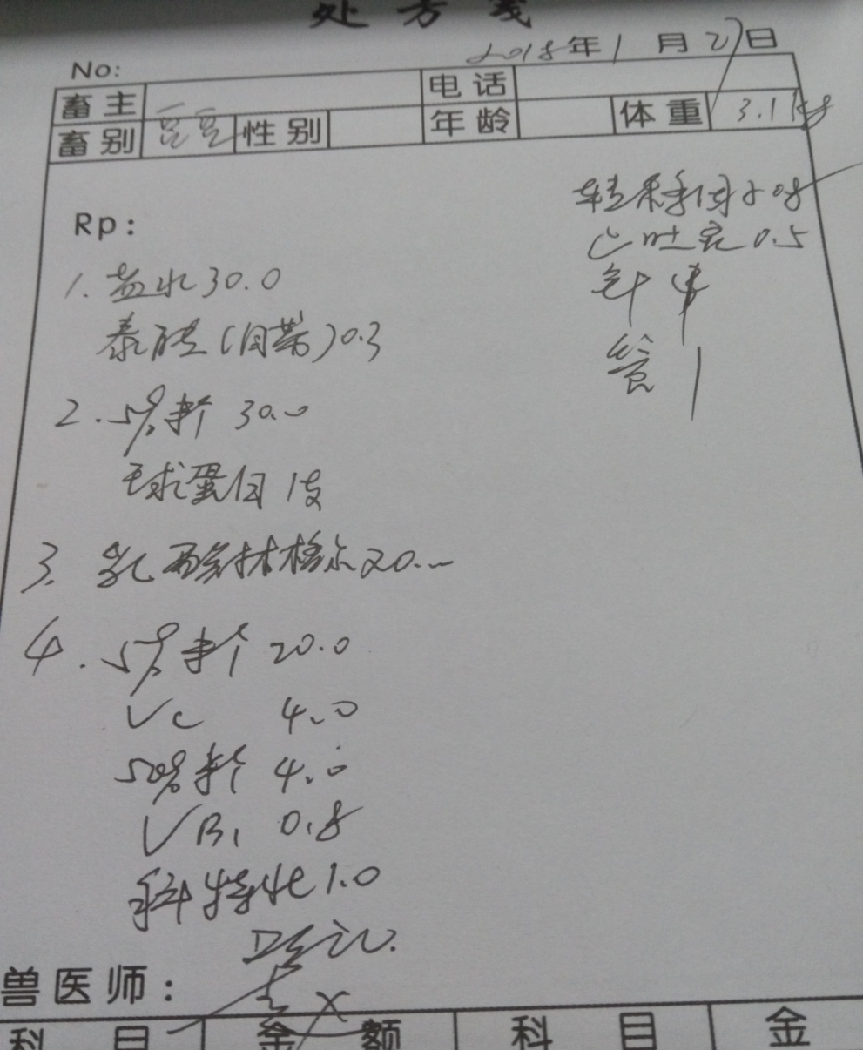 处方笺
2018年1月27日
No:
畜主 电话
畜别 豆豆 性别 年龄 体重 3.1kg
Rp:
1. 盐水 30.0
泰能(自带) 0.3
2. 5% 30.0
球蛋白 1支
3. 乳酸林格尔 20.-
4. 5% 20.0
Vc 4.0
50% 4.0
VB1 0.8
科特壮 1.0
0.8
止吐宁 0.5
针 4
管 1
兽医师:
科目 金额 科目 金